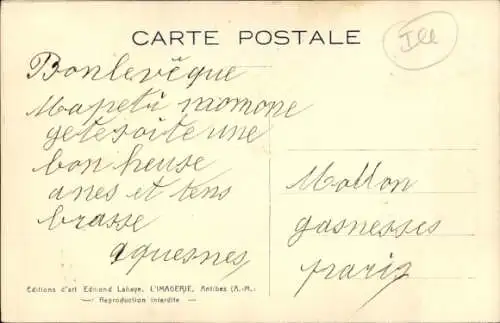 CARTE POSTALE
Ill
Bonlevêque
Mapeti momone
getesoite une
bon heuse
anes et tens
brasse
aquesnes
Mollon
gasnesses
paris
Editions d'art Edmond Lahaye, L'IMAGERIE, Antibes (A.-M.)
— Reproduction interdite —